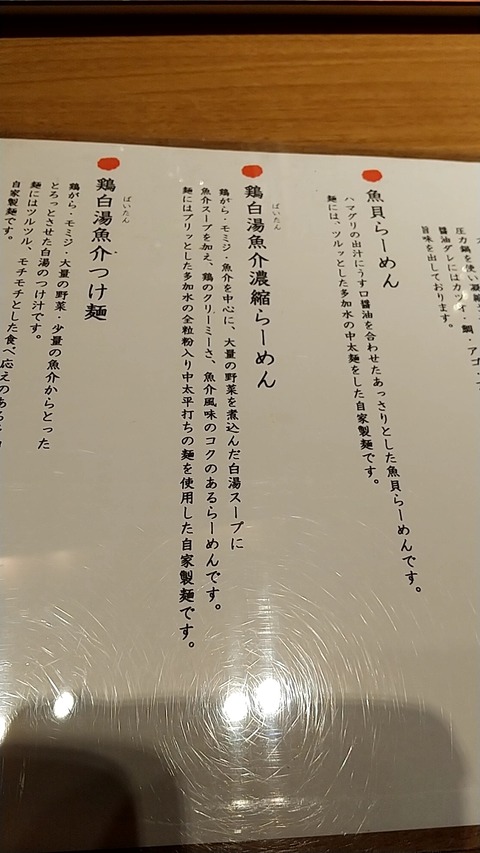 圧力鍋を使い凝縮
醤油ダレにはカツオ・鯛・アゴ・
旨味を出しております。
魚貝らーめん
ハマグリの出汁にうす口醤油を合わせたあっさりとした魚貝らーめんです。
麺には、ツルッとした多加水の中太麺をした自家製麺です。
ぱいたん
鶏白湯魚介濃縮らーめん
鶏がら・モミジ・魚介を中心に、大量の野菜を煮込んだ白湯スープに
魚介スープを加え、鶏のクリーミーさ、魚介風味のコクのあるらーめんです。
麺にはプリッとした多加水の全粒粉入り中太平打ちの麺を使用した自家製麺です。
ぱいたん
鶏白湯魚介つけ麺
鶏がら・モミジ・大量の野菜・少量の魚介からとった
とろっとさせた白湯のつけ汁です。
麺にはツルツル、モチモチとした食べ応えのある
自家製麺です。